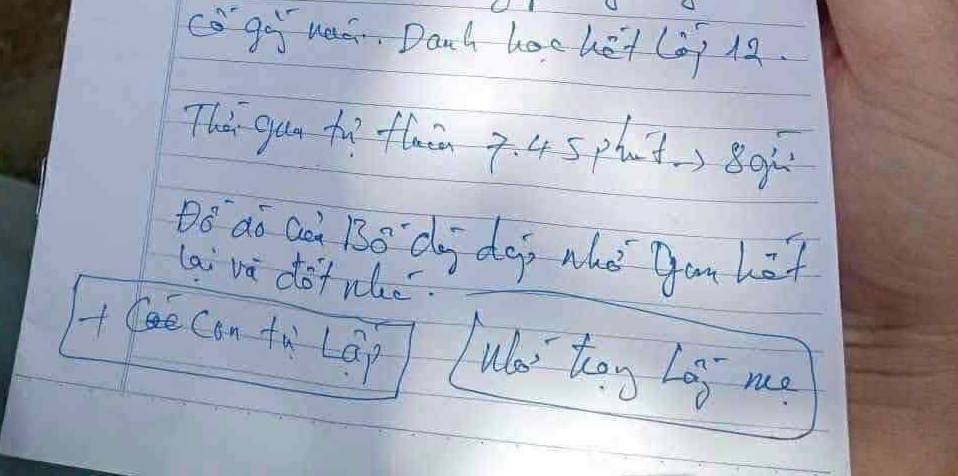 cố gắng nuôi. Danh học hết lớp 12.
Thời gian tự thiêu 7.45 phút -> 8 giờ
Đồ đó của Bố dày dép nhớ gom hết
lại và đốt nhé.
+ Các con tự Lập
Nhớ trông Lấy mẹ